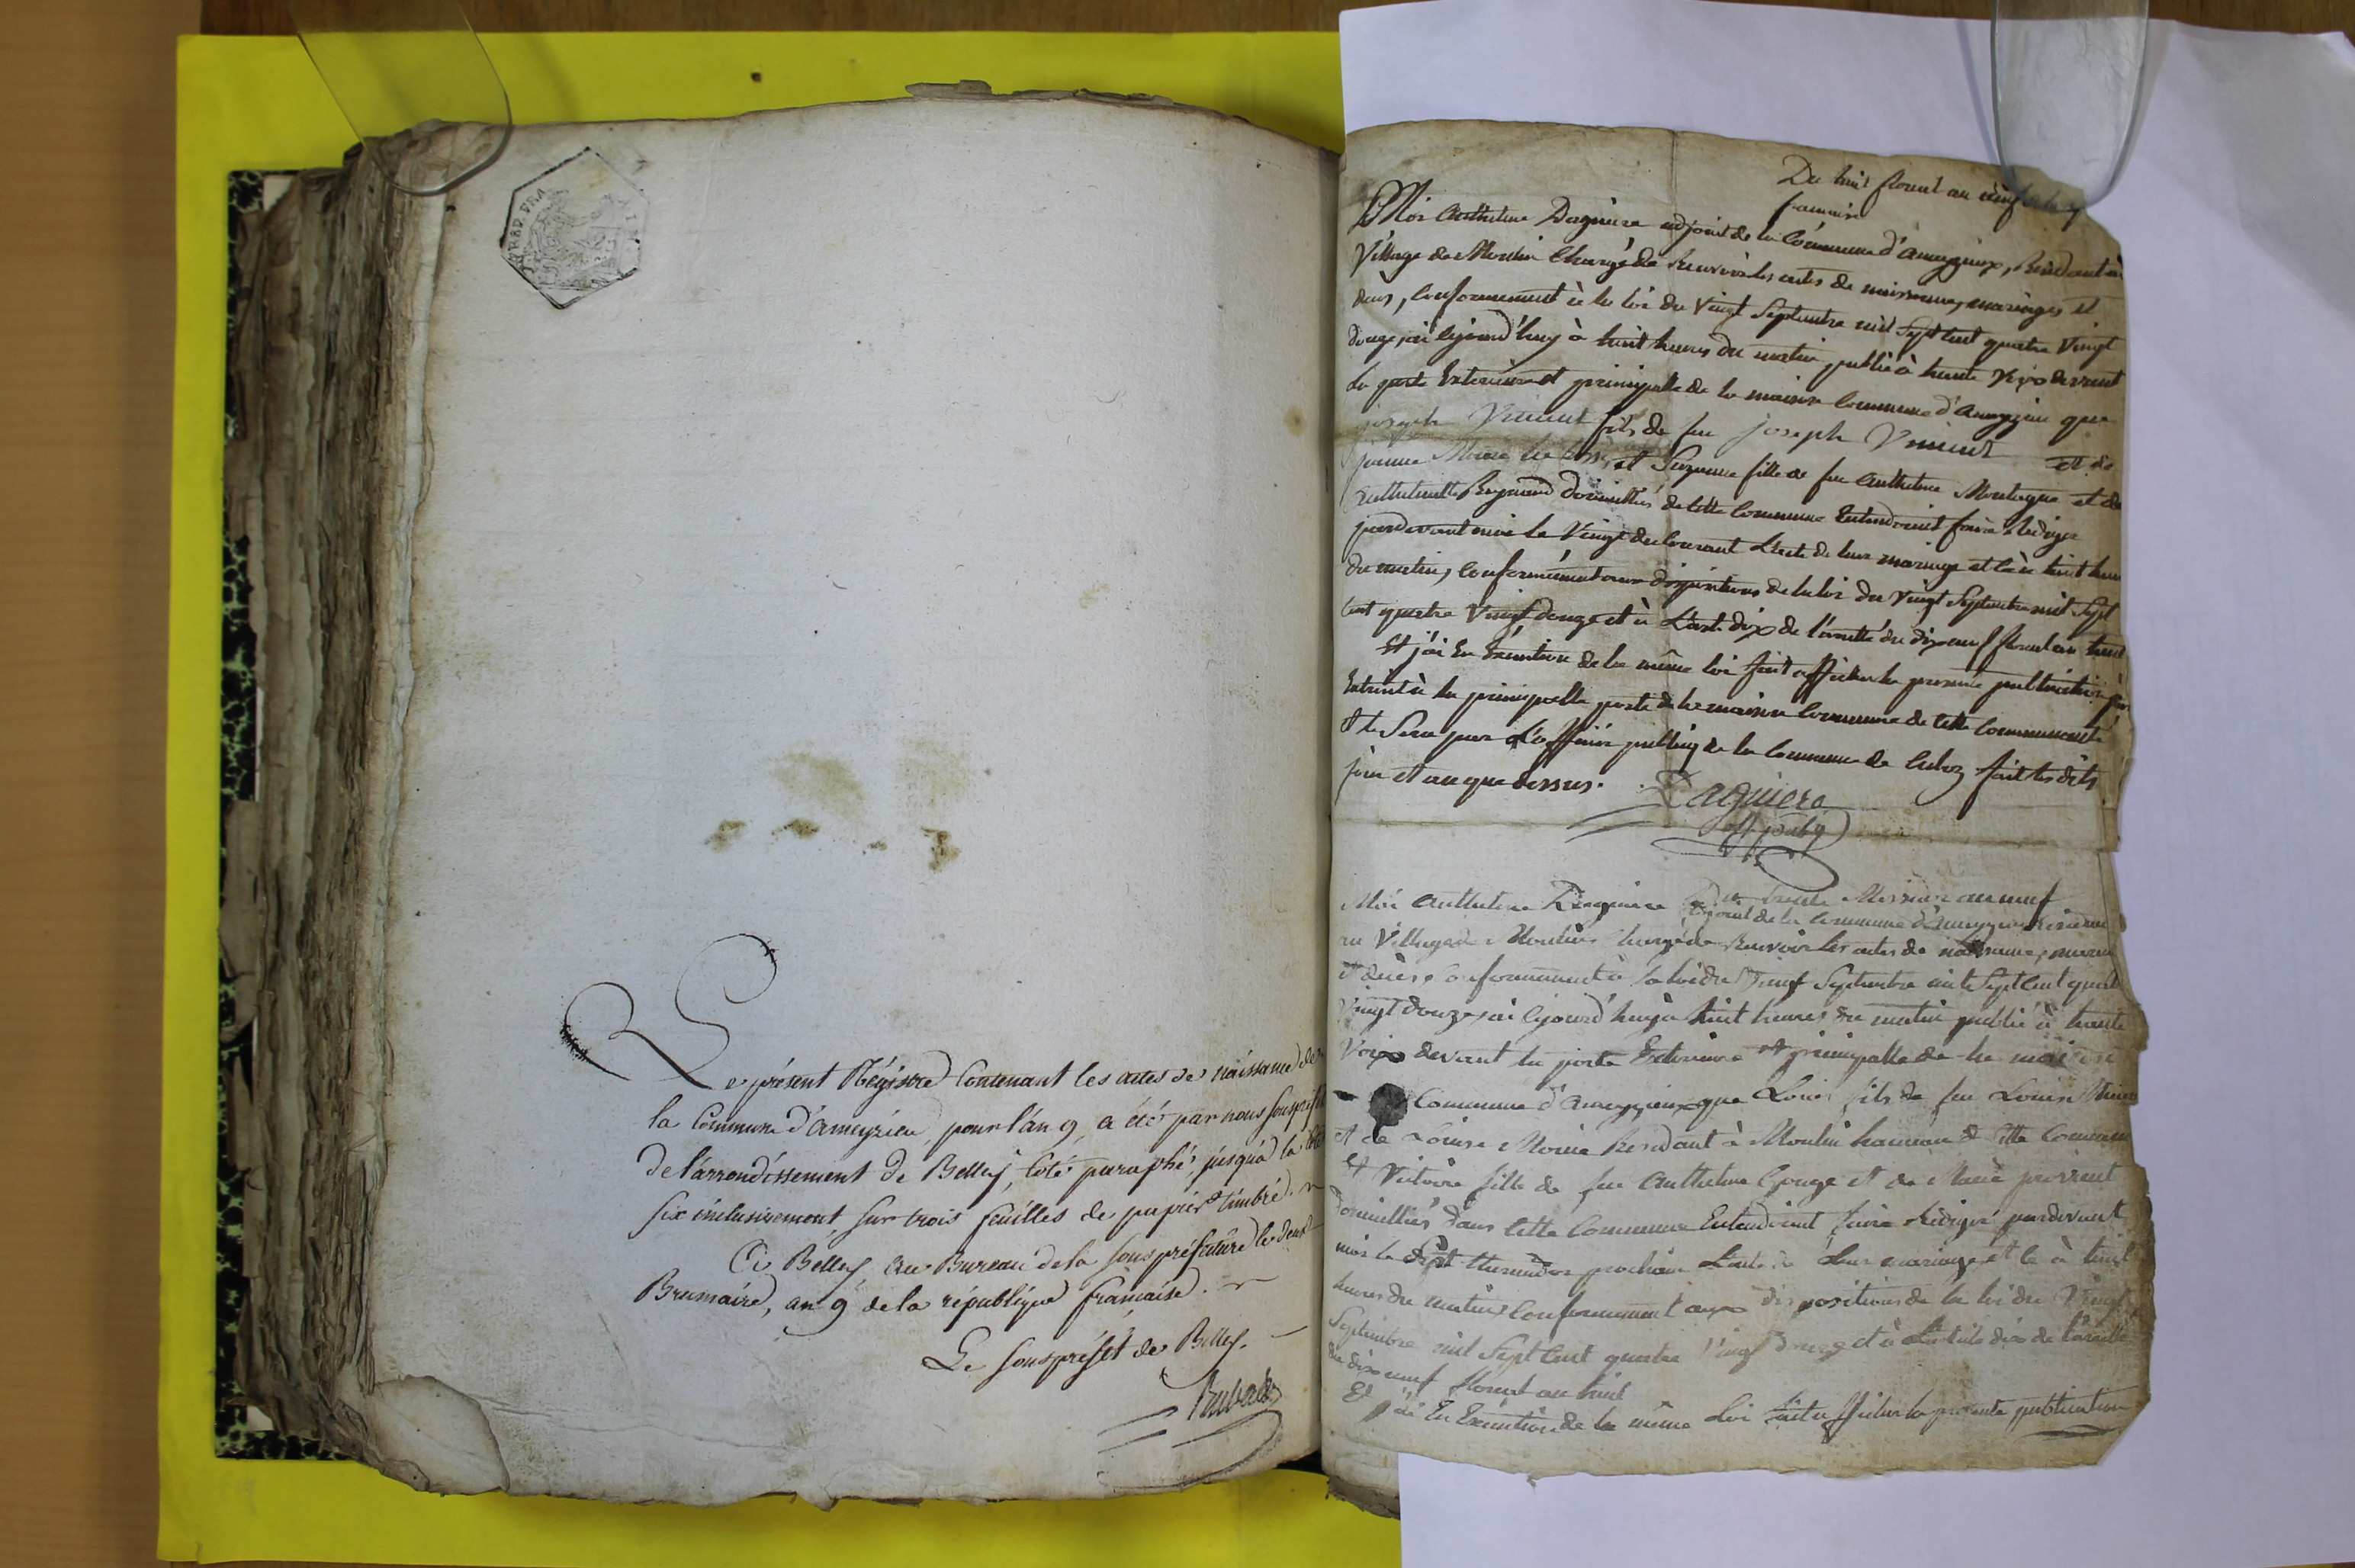 Le présent Régistre Contenant les actes de naissance de
la Commune d'ameyzieu, pour l'an 9, a été par nous souspréfet
de l'arrondissement de Belley, coté paraphé, jusqu'à la
six inclusivement sur trois feuilles de papier timbré.
A Belley au Bureau de la souspréfecture le deux
Brumaire, an 9 de la république française.
Le souspréfet de Belley.
Du huit floreal an neuf
francaise
Moi Anthelme Daguiere adjoint de la Commune d'Ameyzieux, Residant à
Village de Moulin Chargé de Recevoir les actes de naissance, mariages et
deces, Conformement à la loi du Vingt Septembre mil Sept Cent quatre Vingt
douze, ai cejourd'huy à huit heures du matin, publié à haute Voix devant
la porte Exterieure et principalle de la maison Commune d'Ameyzieu que
joseph Vincent fils de feu joseph Vincent et de
et Suzanne fille de feu Anthelme Montagne et de
Anthelmette Reynaud domiciliés de Cette Commune Entendoient faire Rediger
pardevant moi le Vingt du Courant L'acte de leur mariage et là à huit heures
du matin, Conformément aux dispositions de la loi du Vingt Septembre mil Sept
Cent quatre Vingt douze et à L'art. dix de l'arrêté du dix neuf floreal an huit
Et j'ai En Execution de la même loi fait afficher la presente publication
Extrait à la principalle porte de la maison Commune de Cette Commune
Et le Sera par L'officier publiq de la Commune de Culoz fait les dits
jour et an que dessus.
Daguiere
off. publ
trente Messidor an neuf
Moi Anthelme Daguiere adjoint de la Commune d'Ameyzieu Residant
au Village de Moulin Chargé de Recevoir les actes de naissance, mariage
et décès Conformement à la loi du Vingt Septembre mil Sept Cent quatre
Vingt douze, ai Cejourd'huy à huit heures du matin publié à haute
Voix devant la porte Exterieure et principalle de la maison
Commune d'Ameyzieux que Louis fils de feu Louis
et de Louise Moine Residant à Moulin hameau de Cette Commune
Et Victoire fille de feu Anthelme Gouge et de Marie
domiciliés dans Cette Commune Entendoient faire Rédiger pardevant
moi le Sept thermidor prochain L'acte de Leur mariage et la à huit
heures du matin Conformement aux dispositions de la loi du Vingt
Septembre mil Sept Cent quatre Vingt douze et à L'article dix de l'arrêté
du dix neuf floreal an huit
Et j'ai En Execution de la même Loi fait afficher la presente publication